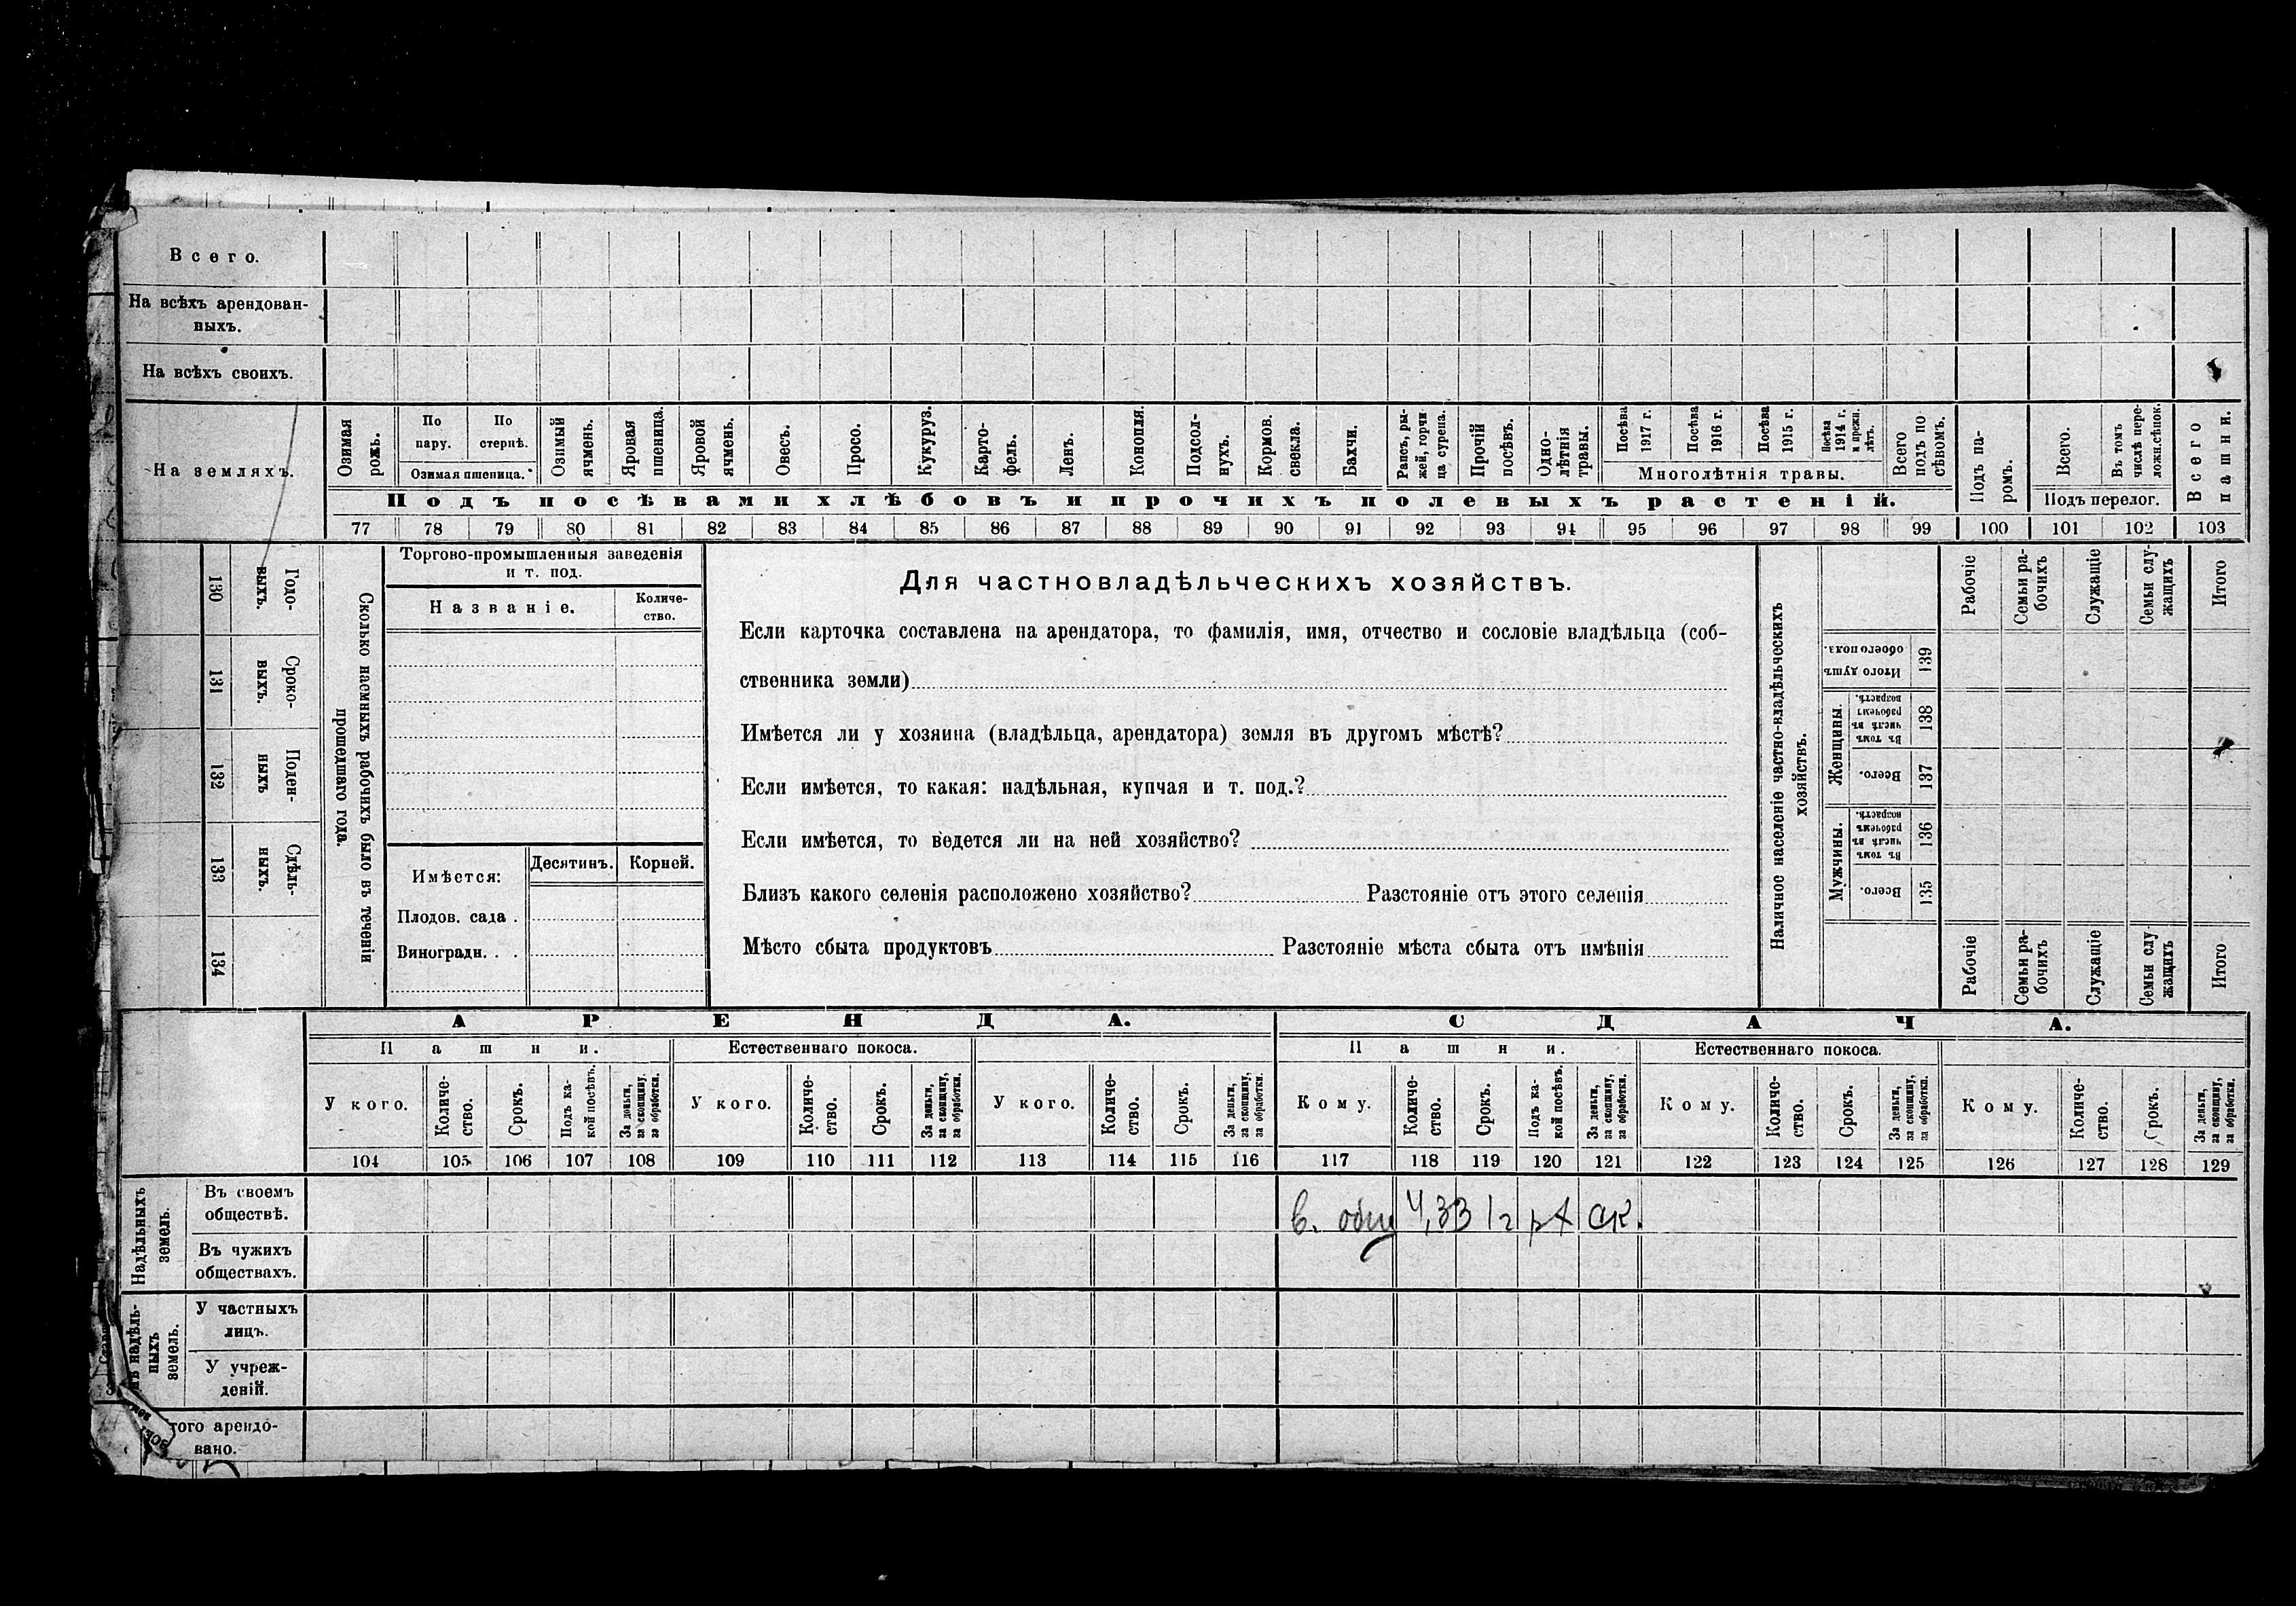 Всего.
На всѣхъ арендован-
ныхъ.
На всѣхъ своихъ.
На земляхъ.
Озимая рожь.
По пару.
По стернѣ.
Озимая пшеница.
Озимый ячмень.
Яровая пшеница.
Яровой ячмень.
Овесъ.
Просо.
Кукуруз.
Карто-
фель.
Ленъ.
Конопля.
Подсол-
нухъ.
Кормов. свекла.
Бахчи.
Рапсъ, ры-
жей, горчи
ца сурепа.
Прочій посѣвъ.
Одно-
лѣтнія травы.
Посѣва 1917 г.
Посѣва 1916 г.
Посѣва 1915 г.
Посѣва 1914 г. и прежн. лѣтъ.
Многолѣтнія травы.
Всего подъ по-
сѣвомъ.
Подъ па-
ромъ.
Всего.
Въ томъ числѣ пере-
ложн.сѣнок.
Подъ перелог.
Всего пашни.
Подъ посѣвами хлѣбовъ и прочихъ полевыхъ растеній.
77 78 79 80 81 82 83 84 85 86 87 88 89 90 91 92 93 94 95 96 97 98 99 100 101 102 103
130 Годо-
выхъ.
131 Сроко-
выхъ.
132 Поден-
ныхъ
133 Сдѣль-
ныхъ.
134
Сколько наемныхъ рабочихъ было въ теченіи
прошедшаго года.
Торгово-промышленныя заведенія
и т. под.
Названіе.
Количе-
ство.
Имѣется:
Десятинъ.
Корней.
Плодов. сада .
Виноградн. . .
Для частновладѣльческихъ хозяйствъ.
Если карточка составлена на арендатора, то фамилія, имя, отчество и сословіе владѣльца (соб-
ственника земли)
Имѣется ли у хозяина (владѣльца, арендатора) земля въ другомъ мѣстѣ?
Если имѣется, то какая: надѣльная, купчая и т. под.?
Если имѣется, то ведется ли на ней хозяйство?
Близъ какого селенія расположено хозяйство? Разстояніе отъ этого селенія
Мѣсто сбыта продуктовъ Разстояніе мѣста сбыта отъ имѣнія
Наличное населеніе частно-владѣльческихъ
хозяйствъ.
Рабочіе
Семьи ра-
бочихъ
Служащіе
Семьи слу-
жащихъ
Итого
Итого душъ обоего пола. 139
Женщины.
Въ томъ числѣ въ рабочемъ возрастѣ. 138
Всего. 137
Мужчины.
Въ томъ числѣ въ рабочемъ возрастѣ. 136
Всего. 135
Рабочіе
Семьи ра-
бочихъ
Служащіе
Семьи слу
жащихъ
Итого
АРЕНДА.
СДАЧА.
Пашни.
Естественнаго покоса.
Пашни.
Естественнаго покоса.
У кого.
Количе-
ство.
Срокъ.
Подъ ка-
кой посѣвъ.
За деньги,
за скопщину,
за обработки.
У кого.
Количе-
ство.
Срокъ.
За деньги,
за скопщину,
за обработки.
У кого.
Количе-
ство.
Срокъ.
За деньги,
за скопщину,
за обработки.
Кому.
Количе-
ство.
Срокъ.
Подъ ка-
кой посѣвъ.
За деньги,
за скопщину,
за обработки.
Кому.
Количе-
ство.
Срокъ.
За деньги,
за скопщину,
за обработки.
Кому.
Количе-
ство.
Срокъ.
За деньги,
за скопщину,
за обработки.
104 105 106 107 108 109 110 111 112 113 114 115 116 117 118 119 120 121 122 123 124 125 126 127 128 129
Надѣльныхъ
земель.
Въ своемъ
обществѣ.
4,33 1г
ск.
Въ чужихъ
обществахъ.
надѣль-
ныхъ
земель.
У частныхъ
лицъ.
У учреж-
деній.
того арендо-
вано.